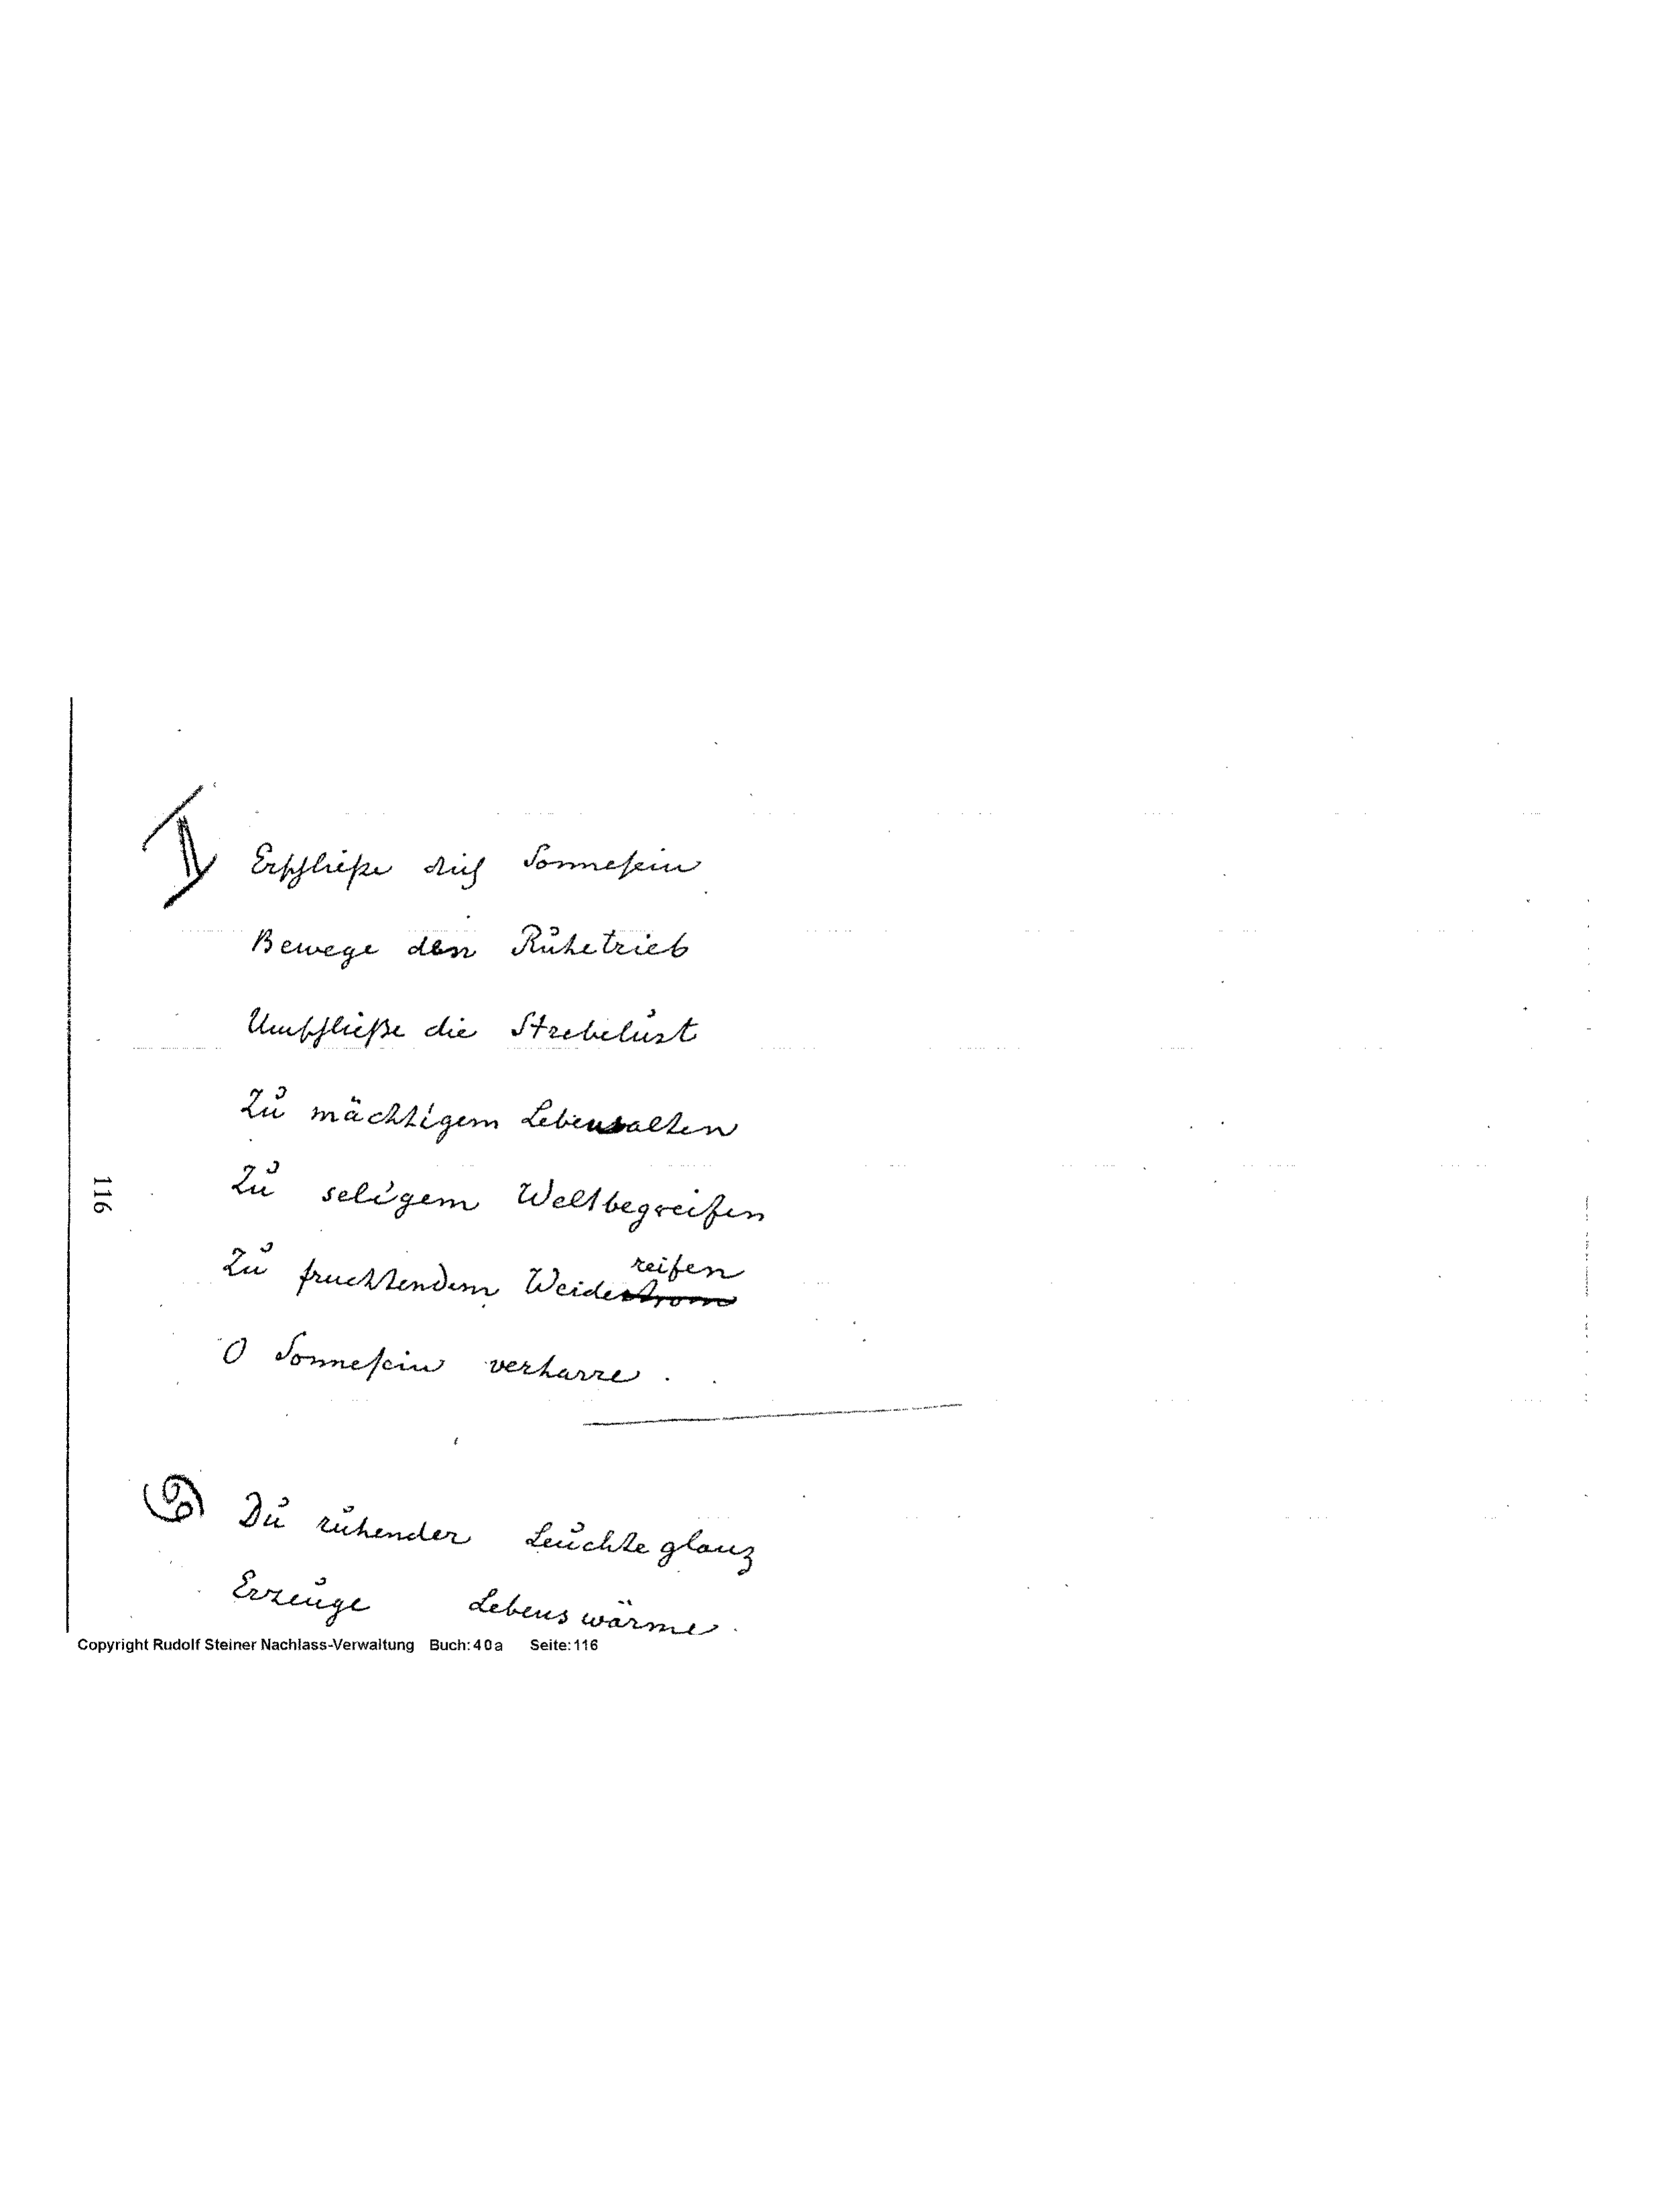 ♊ Erschließe dich Sonnesein
Bewege den Ruhetrieb
Umschließe die Strebelust
Zu mächtigem Lebewalten
Zu seligem Weltbegreifen
reifen
Zu fruchtendem Werdestrom
O Sonnesein verharre.
116
♋ Du ruhender Leuchteglanz
Erzeuge Lebenswärme.
Copyright Rudolf Steiner Nachlass-Verwaltung Buch:40a Seite:116